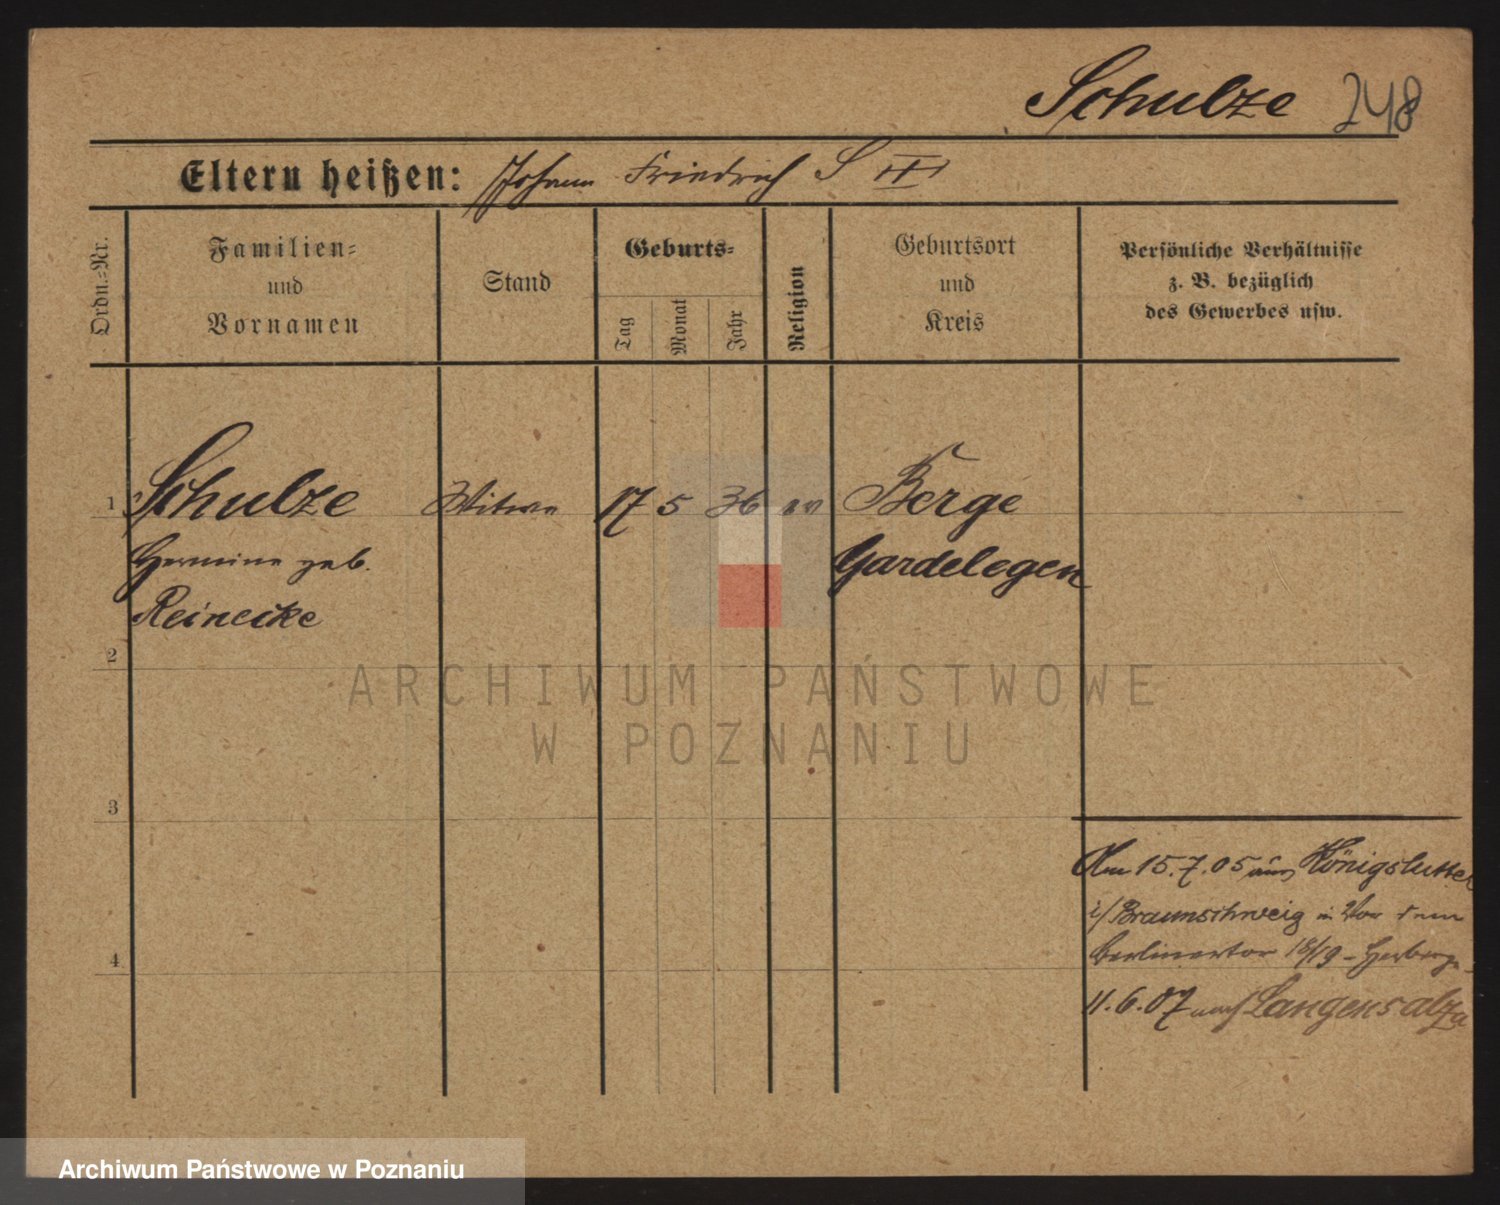 Schulze 248
Eltern heißen: Johann Friedrich S III
Ordn.-Nr.
Familien-
und
Vornamen
Stand
Geburts-
Tag
Monat
Jahr
Religion
Geburtsort
und
Kreis
Persönliche Verhältnisse
z. B. bezüglich
des Gewerbes usw.
1 Schulze Witwe 17 5 36 ev Berge
Hermine geb. Gardelegen
Reinecke
2
ARCHIWUM PAŃSTWOWE
W POZNANIU
3
Am 15.7.05 aus Königslutter
i/Braunschweig in Vor dem
Berlinertor 18/19 - Herberge
4
11.6.07 nach Langensalza
Archiwum Państwowe w Poznaniu